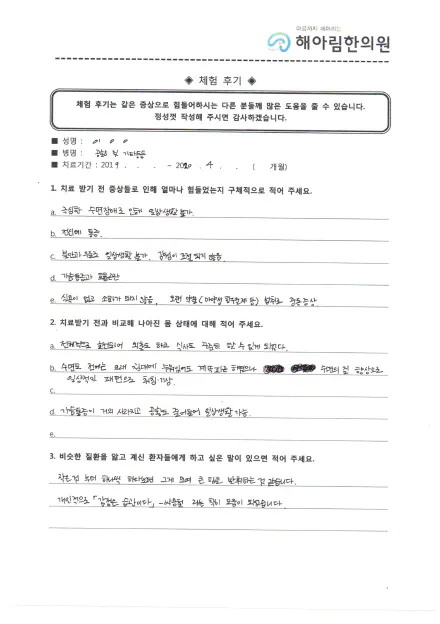 마음까지 헤아리는
해아림한의원
◈ 체험 후기 ◈
체험 후기는 같은 증상으로 힘들어하시는 다른 분들께 많은 도움을 줄 수 있습니다.
정성껏 작성해 주시면 감사하겠습니다.
■ 성명 : 이 ○ ○
■ 병명 : 공황 및
■ 치료기간 : 2019 . . . - 2020 . 4 . . ( 개월)
1. 치료 받기 전 증상들로 인해 얼마나 힘들었는지 구체적으로 적어 주세요.
a. 극심한 수면장애로 인해 일상생활 불가.
b. 전신에 통증.
c. 불안과 우울로 일상생활 불가, 감정이 조절 되지 않음.
d. 가슴통증과
e. 식욕이 없고 소화가 되지 않음, 오랜 약물( 등)
2. 치료받기 전과 비교해 나아진 몸 상태에 대해 적어 주세요.
a. 전체적으로 호전되어 외출도 하고 식사도 조금씩 할 수 있게 되었다.
b. 수면도 전에는 오래 침대에 누워있어도 수면의 질 향상으로
일상적인 패턴으로
c.
d. 가슴통증이 거의 사라지고 공황도 줄어들어 일상생활 가능.
e.
3. 비슷한 질환을 앓고 계신 환자들에게 하고 싶은 말이 있으면 적어 주세요.
작은것 부터 하나씩 하다보면 그게 모여 큰 것 같습니다.
개인적으로 「감정은 습관이다」 라는 책이 도움이 되었습니다